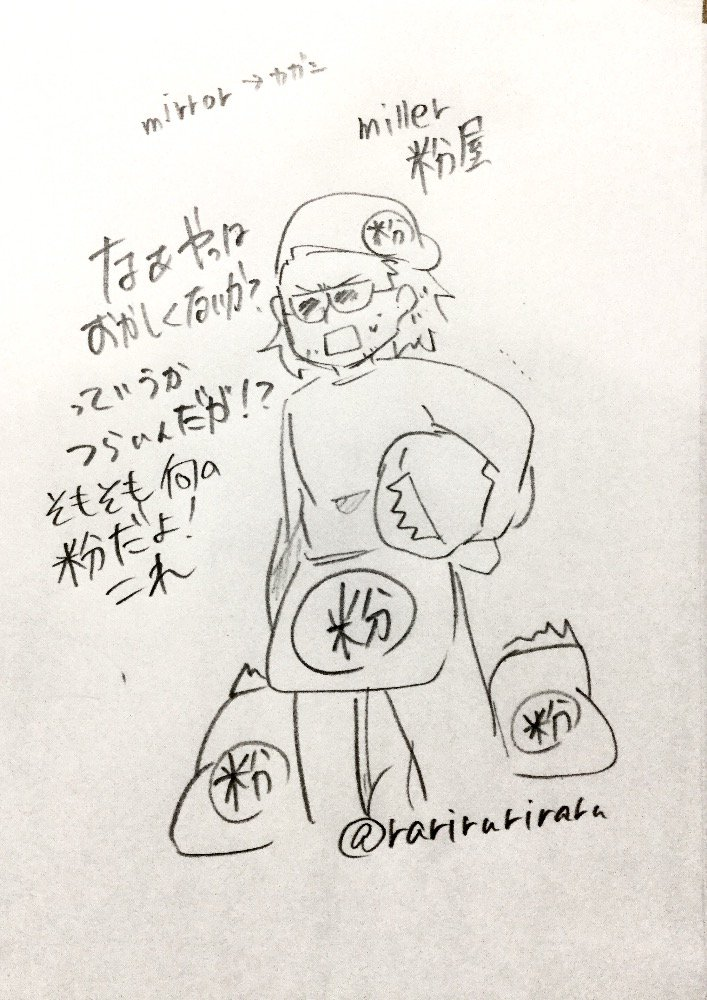 mirror→カガミ
miller
粉屋
粉
なぁやっぱ
おかしくないか?
っていうか
つらいんだが!?
そもそも何の
粉だよ!
これ
粉
粉
粉
@rariruriraru